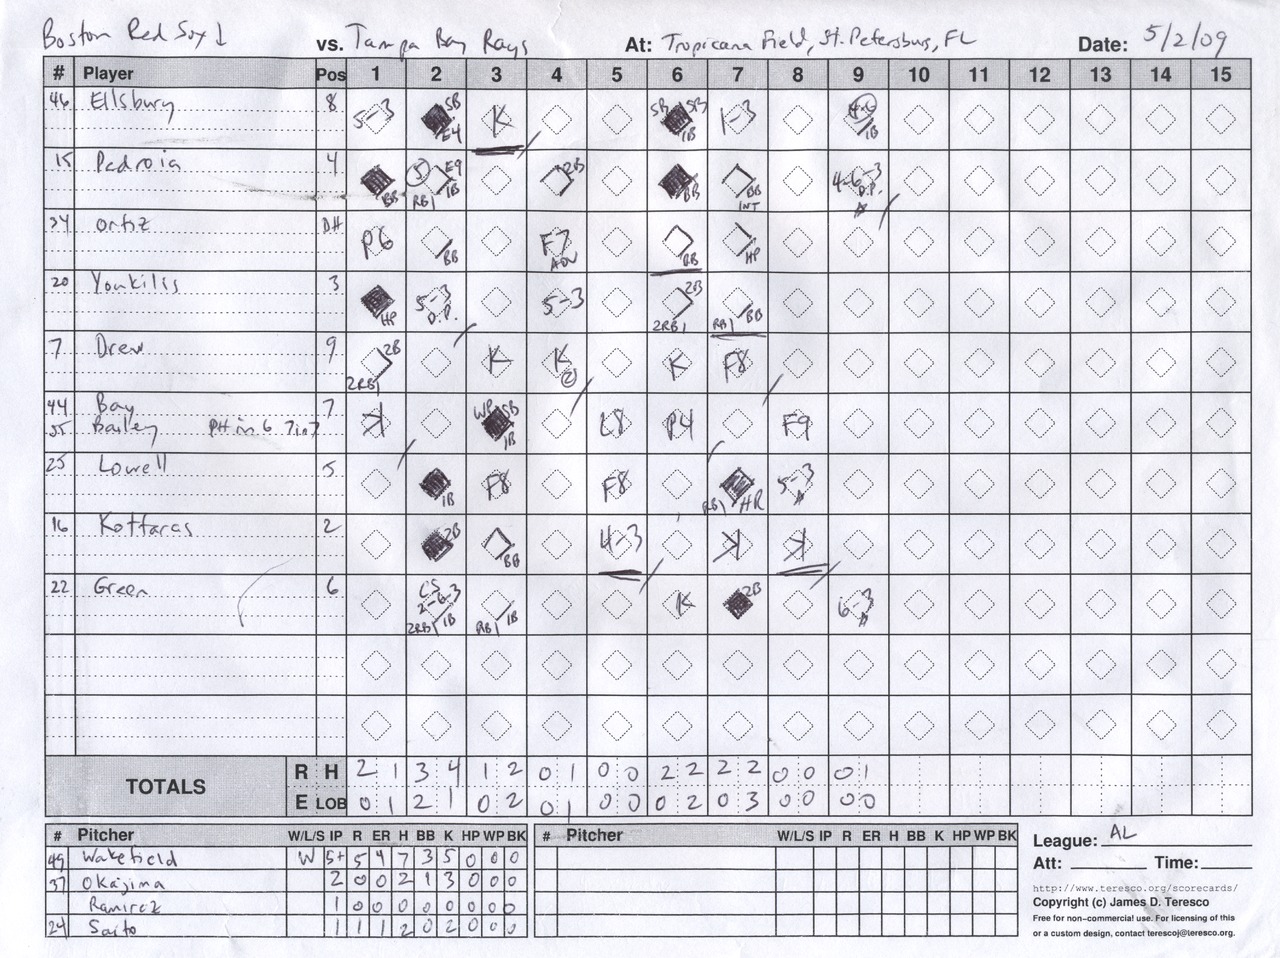 Boston Red Sox ↓ vs. Tampa Bay Rays At: Tropicana Field, St. Petersburg, FL Date: 5/2/09
# Player Pos 1 2 3 4 5 6 7 8 9 10 11 12 13 14 15
46 Ellsbury 8 5-3 SB E4 K SB SB IB 1-3 4-6 IB
15 Pedroia 4 BB 5 E9 RBI IB 2B BB BB INT 4-6-3 D.P.
34 Ortiz DH P6 BB F7 ADV BB HP
20 Youkilis 3 HP 5-3 D.P. 5-3 2B 2RBI RBI BB
7 Drew 9 2B 2RBI K K 2 K F8
44 Bay 7 K WP SB IB L8 P4 F9
35 Bailey PH in 6 7 in 7
25 Lowell 5 IB F8 F8 RBI HR 5-3
16 Kottaras 2 2B BB 4-3 K K
22 Green 6 CS 2-6-3 2RBI IB RBI IB K 2B 6-3
TOTALS R H 2 1 3 4 1 2 0 1 0 0 2 2 2 2 0 0 0 1
E LOB 0 1 2 1 0 2 0 1 0 0 0 2 0 3 0 0 0 0
# Pitcher W/L/S IP R ER H BB K HP WP BK # Pitcher W/L/S IP R ER H BB K HP WP BK
49 Wakefield W 5+ 5 4 7 3 5 0 0 0
37 Okajima 2 0 0 2 1 3 0 0 0
Ramirez 1 0 0 0 0 0 0 0 0
24 Saito 1 1 1 2 0 2 0 0 0
League: AL
Att: Time:
http://www.teresco.org/scorecards/
Copyright (c) James D. Teresco
Free for non-commercial use. For licensing of this
or a custom design, contact terescoj@teresco.org.